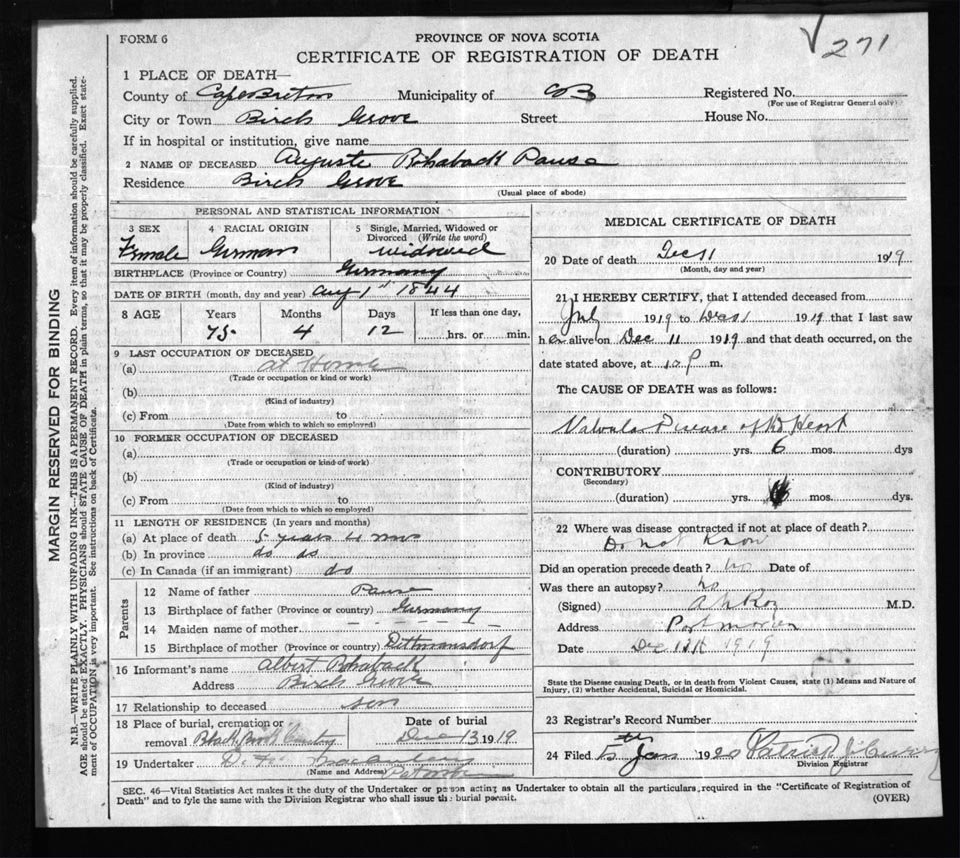 FORM 6
PROVINCE OF NOVA SCOTIA
CERTIFICATE OF REGISTRATION OF DEATH
√ 271
1 PLACE OF DEATH—
County of Cape Breton Municipality of CB Registered No.
(For use of Registrar General only)
City or Town Birch Grove Street House No.
If in hospital or institution, give name
2 NAME OF DECEASED Auguste Rohaback Pause
Residence Birch Grove
(Usual place of abode)
MARGIN RESERVED FOR BINDING
N.B.—WRITE PLAINLY WITH UNFADING INK—THIS IS A PERMANENT RECORD. Every item of information should be carefully supplied.
AGE should be stated EXACTLY. PHYSICIANS should STATE CAUSE OF DEATH in plain terms, so that it may be properly classified. Exact state-
ment of OCCUPATION is very important. See instructions on back of Certificate.
PERSONAL AND STATISTICAL INFORMATION
3 SEX 4 RACIAL ORIGIN 5 Single, Married, Widowed or
Divorced (Write the word)
Female German widowed
BIRTHPLACE (Province or Country) Germany
DATE OF BIRTH (month, day and year) Aug 1st 1844
8 AGE Years Months Days If less than one day,
75 4 12 hrs. or min.
9 LAST OCCUPATION OF DECEASED
(a) at Home
(Trade or occupation or kind or work)
(b)
(Kind of industry)
(c) From to
(Date from which to which so employed)
10 FORMER OCCUPATION OF DECEASED
(a)
(Trade or occupation or kind of work)
(b)
(Kind of industry)
(c) From to
(Date from which to which so employed)
11 LENGTH OF RESIDENCE (In years and months)
(a) At place of death 5 years 4 mos
(b) In province do do
(c) In Canada (if an immigrant) do
Parents
12 Name of father Pause
13 Birthplace of father (Province or country) Germany
14 Maiden name of mother – – – – – –
15 Birthplace of mother (Province or country) Dittmansdorf
16 Informant's name Albert Rohaback
Address Birch Grove
17 Relationship to deceased son
18 Place of burial, cremation or Date of burial
removal Black Brook Cemetery Dec 13 1919
19 Undertaker
(Name and Address)
MEDICAL CERTIFICATE OF DEATH
20 Date of death Dec 11 1919
(Month, day and year)
21 I HEREBY CERTIFY, that I attended deceased from
July 1919 to Dec 11 1919 that I last saw
her alive on Dec 11 1919 and that death occurred, on the
date stated above, at 10 P m.
The CAUSE OF DEATH was as follows:
Valvular Disease of the Heart
(duration) yrs. 6 mos. dys
CONTRIBUTORY
(Secondary)
(duration) yrs. mos. dys.
22 Where was disease contracted if not at place of death?
Do not Know
Did an operation precede death? no Date of
Was there an autopsy? no
(Signed) M.D.
Address Port Morien
Date Dec 1919
State the Disease causing Death, or in death from Violent Causes, state (1) Means and Nature of
Injury, (2) whether Accidental, Suicidal or Homicidal.
23 Registrar's Record Number
24 Filed 5th Jan 1920 Patrick J.
Division Registrar
SEC. 46—Vital Statistics Act makes it the duty of the Undertaker or person acting as Undertaker to obtain all the particulars required in the "Certificate of Registration of
Death" and to fyle the same with the Division Registrar who shall issue the burial permit. (OVER)